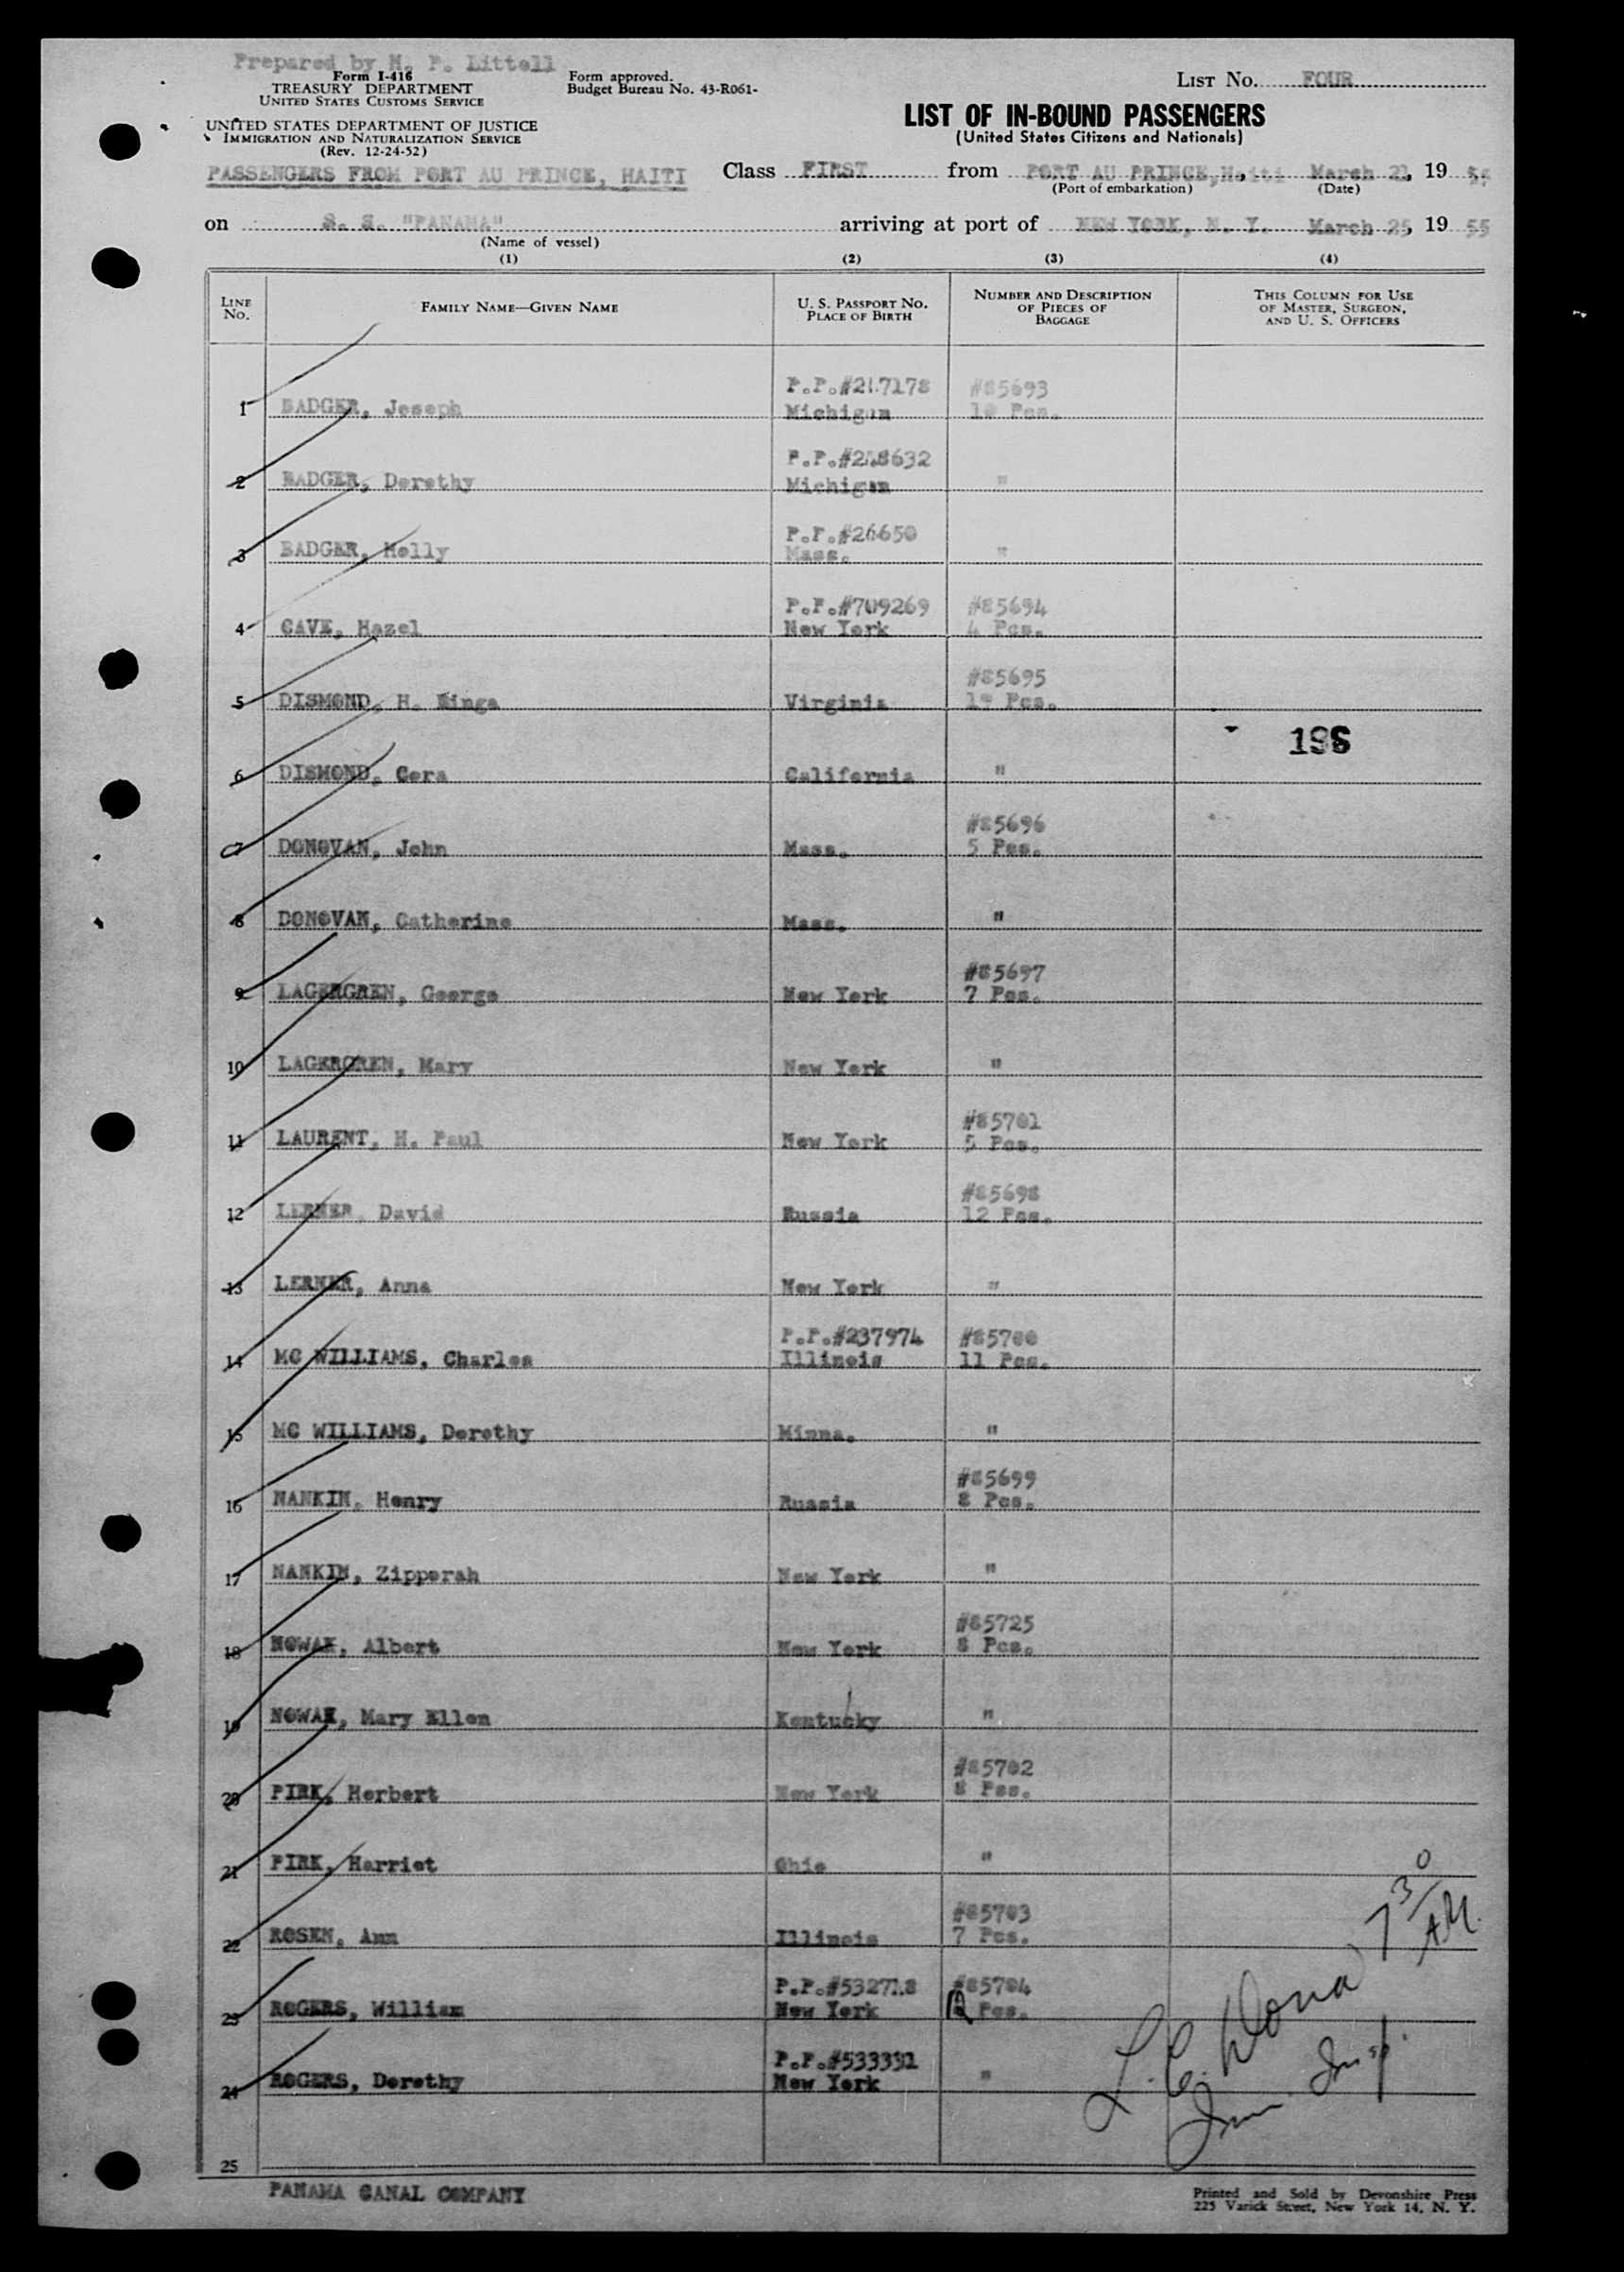 Prepared by H. P. Littell
Form I-416
TREASURY DEPARTMENT
UNITED STATES CUSTOMS SERVICE
Form approved.
Budget Bureau No. 43-R061-
LIST NO. FOUR
UNITED STATES DEPARTMENT OF JUSTICE
IMMIGRATION AND NATURALIZATION SERVICE
(Rev. 12-24-52)
LIST OF IN-BOUND PASSENGERS
(United States Citizens and Nationals)
PASSENGERS FROM PORT AU PRINCE, HAITI Class FIRST from PORT AU PRINCE, Haiti March 21, 19 55
(Port of embarkation) (Date)
on S. S. "PANAMA" arriving at port of NEW YORK, N. Y. March 25, 19 55
(Name of vessel)
(1) (2) (3) (4)
LINE NO. FAMILY NAME—GIVEN NAME U. S. PASSPORT NO. PLACE OF BIRTH NUMBER AND DESCRIPTION OF PIECES OF BAGGAGE THIS COLUMN FOR USE OF MASTER, SURGEON, AND U. S. OFFICERS
#85693
1 BADGER, Joseph Michigan Pcs.
2 BADGER, Dorothy Michigan "
P.P.#26650
3 BADGER, Molly Mass. "
P.P.#709269 #85694
4 CAVE, Hazel New York 4 Pcs.
#85695
5 DISMOND, H. Binga Virginia Pcs.
198
6 DISMOND, Cora California "
#85696
7 DONOVAN, John Mass. 5 Pcs.
8 DONOVAN, Catherine Mass. "
#85697
9 LAGERGREN, George New York 7 Pcs.
10 LAGERGREN, Mary New York "
#85701
11 LAURENT, H. Paul New York 5 Pcs.
#85698
12 LERNER, David Russia 12 Pcs.
13 LERNER, Anna New York "
P.P.#237974 #85700
14 MC WILLIAMS, Charles Illinois 11 Pcs.
15 MC WILLIAMS, Dorothy Minna. "
#85699
16 NANKIN, Henry Russia 8 Pcs.
17 NANKIN, Zipporah New York "
#85725
18 NOWAK, Albert New York 8 Pcs.
19 NOWAK, Mary Ellen Kentucky "
#85702
20 PIRK, Herbert New York 8 Pcs.
21 PIRK, Harriet Ohio "
#85703
22 ROSEN, Ann Illinois 7 Pcs.
7 30 AM.
P.P.#532718 #85704
23 ROGERS, William New York Pcs.
P.P.#533331
24 ROGERS, Dorothy New York "
Imm. Insp.
25
PANAMA CANAL COMPANY
Printed and Sold by Devonshire Press
225 Varick Street, New York 14, N. Y.